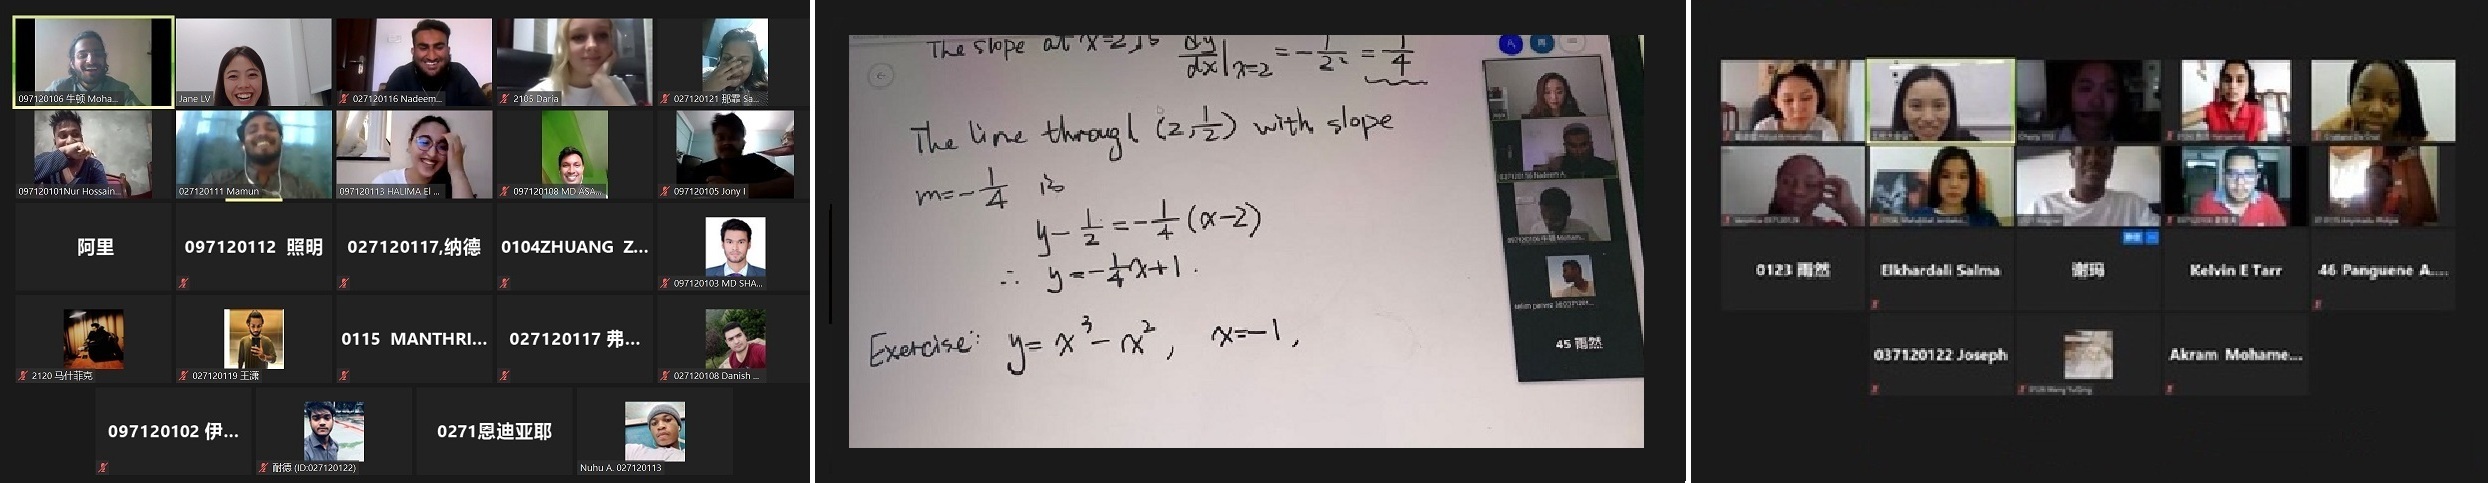 097120106 牛顿 Moha...
Jane LV
027120116 Nadeem...
2105 Daria
027120121 那霏 Sa...
097120101Nur Hossain...
027120111 Mamun
097120113 HALIMA El ...
097120108 MD ASA...
097120105 Jony I
阿里
097120112 照明
027120117,纳德
0104ZHUANG Z...
097120103 MD SHA...
2120 马什菲克
027120119 王潇
0115 MANTHRI...
027120117 弗...
027120108 Danish ...
097120102 伊...
耐德 (ID:027120122)
0271恩迪亚耶
Nuhu A. 027120113
The slope at x=2, is dy/dx|x=2 = -1/2² = -1/4
The line through (2, 1/2) with slope
m=-1/4 is
y-1/2=-1/4(x-2)
∴ y=-1/4x+1.
Exercise: y=x³-x², x=-1,
45 雨然
0123 雨然
Elkhardali Salma
谢玛
Kelvin E Tarr
46 Panguene A....
037120122 Joseph
Akram Mohame...